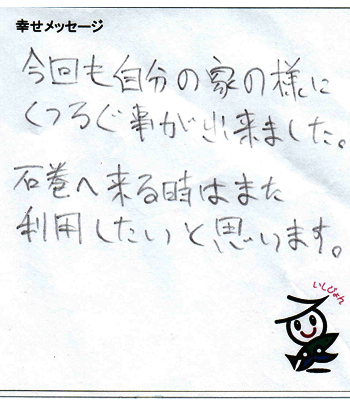 幸せメッセージ
今回も自分の家の様に
くつろぐ事が出来ました。
石巻へ来る時はまた
利用したいと思います。
いしぴょん